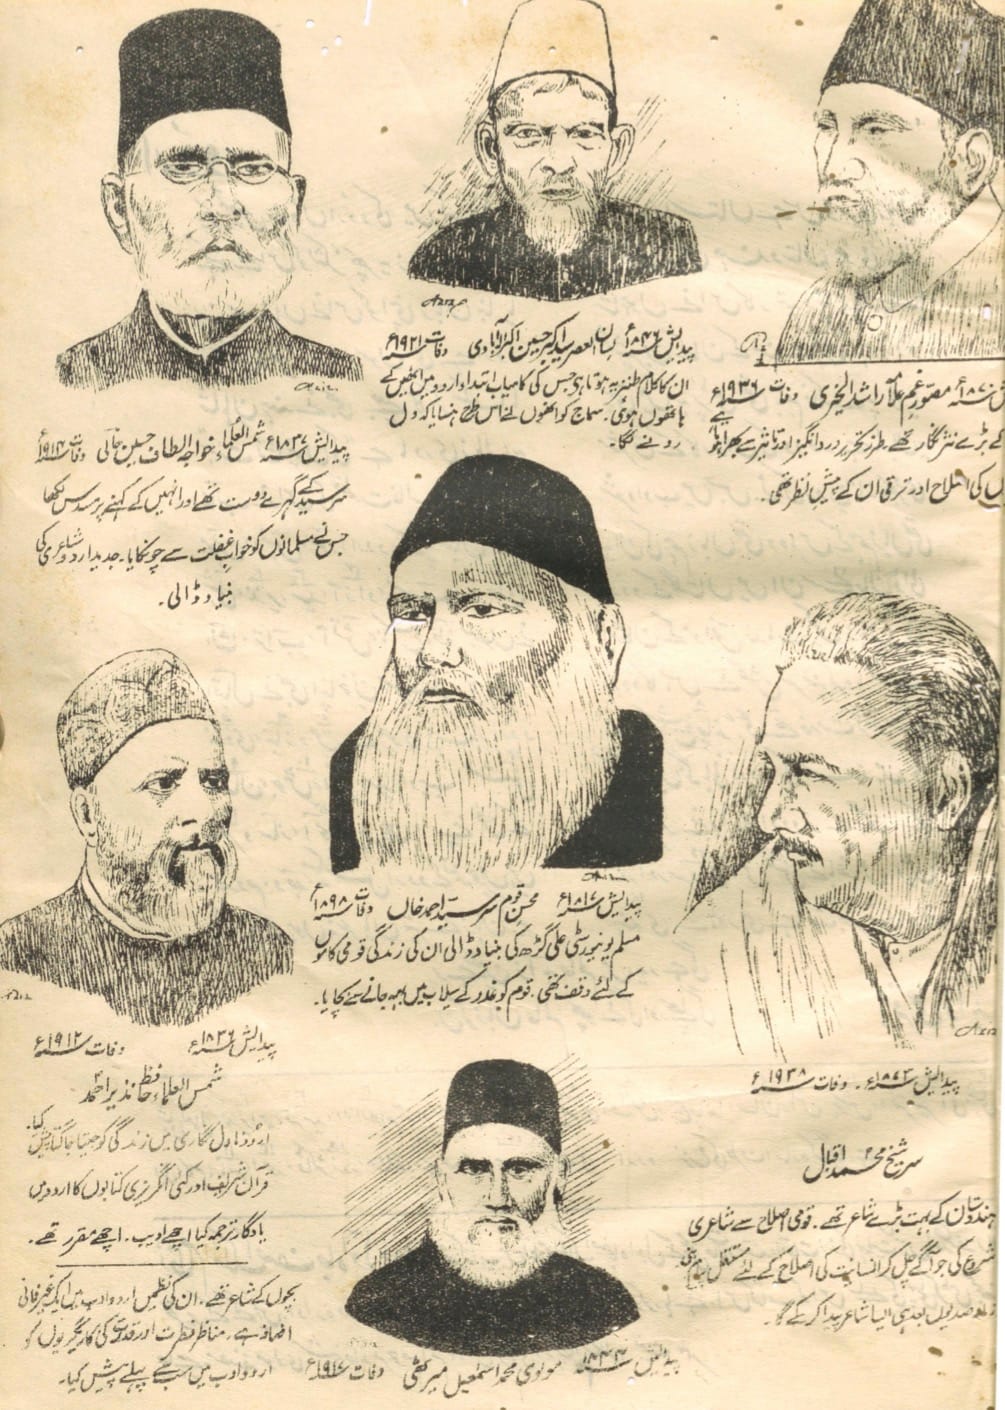 پیدائش ۱۸۳۷ء شمس العلماء خواجہ الطاف حسین حالی وفات ۱۹۱۴ء
سرسید کے گہرے دوست تھے اور انہیں کے کہنے پر مسدس لکھا
جس نے مسلمانوں کو خوابِ غفلت سے چونکایا۔ جدید اردو شاعری کی
بنیاد ڈالی۔
Aziz
پیدائش ۱۸۴۶ء لسان العصر سید اکبر حسین اکبر الہ آبادی وفات ۱۹۲۱ء
ان کا کلام طنزیہ ہوتا ہے جس کی کامیاب ابتدا و اردو میں انھیں کے
ہاتھوں ہوئی۔ سماج کو انھوں نے اس طرح ہنسایا کہ دل
رونے لگا۔
Aziz
۱۸۷۰ء مصور غم علامہ راشد الخیری وفات ۱۹۳۶ء
کے بڑے نثر نگار تھے۔ طرز تحریر درد انگیز اور تاثیر سے بھرا ہوتا ہے
کی اصلاح اور ترقی ان کے پیش نظر تھی۔
پیدائش ۱۸۱۷ء محسن قوم سرسید احمد خاں وفات ۱۸۹۸ء
مسلم یونیورسٹی علی گڑھ کی بنیاد ڈالی ان کی زندگی قومی کاموں
کے لئے وقف تھی۔ قوم کو غدر کے سیلاب میں بہہ جانے سے بچایا۔
پیدائش ۱۸۳۶ء وفات ۱۹۱۲ء
شمس العلماء حافظ نذیر احمد
اردو ناول نگاری میں زندگی کو جیتا جاگتا پیش کیا۔
قرآن شریف اور کئی انگریزی کتابوں کا اردو میں
یادگار ترجمہ کیا اچھے ادیب۔ اچھے مقرر تھے۔
پیدائش ۱۸۷۳ء۔ وفات ۱۹۳۸ء
سر شیخ محمد اقبال
ہندوستان کے بہت بڑے شاعر تھے۔ قومی اصلاح سے شاعری
شروع کی جو آگے چل کر انسانیت کی اصلاح کے لئے مستقل پیام بنی
صدیوں بعد ہی ایسا شاعر پیدا کرے گا۔
Aziz
پیدائش ۱۸۴۴ء مولوی محمد اسمٰعیل میرٹھی وفات ۱۹۱۷ء
بچوں کے شاعر تھے۔ ان کی نظمیں اردو ادب میں ایک غیر فانی
اضافہ ہے۔ مناظر فطرت اور قدرت کی کاریگریوں کو
اردو ادب میں سب سے پہلے پیش کیا۔